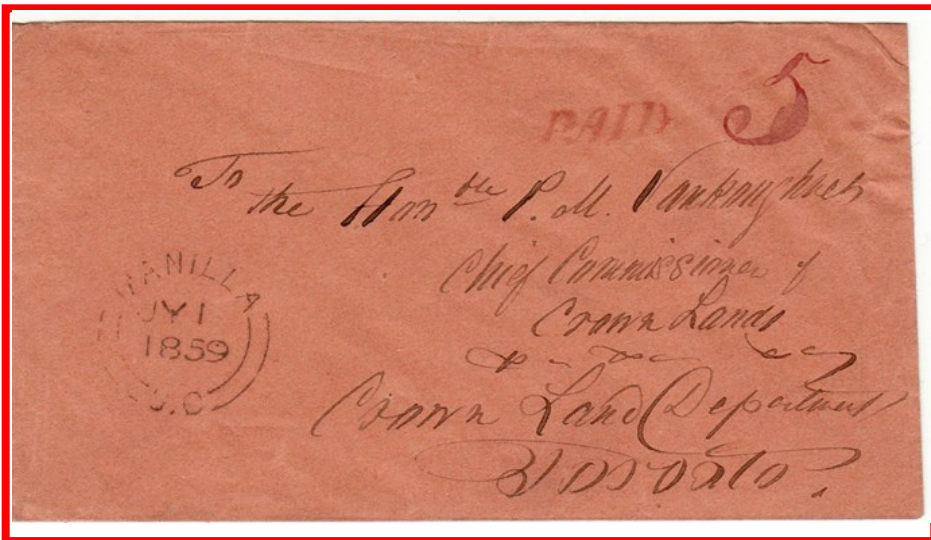 PAID 5
To
the Hon^ble P. M. Vankoughnet
Chief Commissioner of
Crown Lands
&c &c &c
Crown Land Department
Toronto.
MANILLA
JY 1
1859
U.C